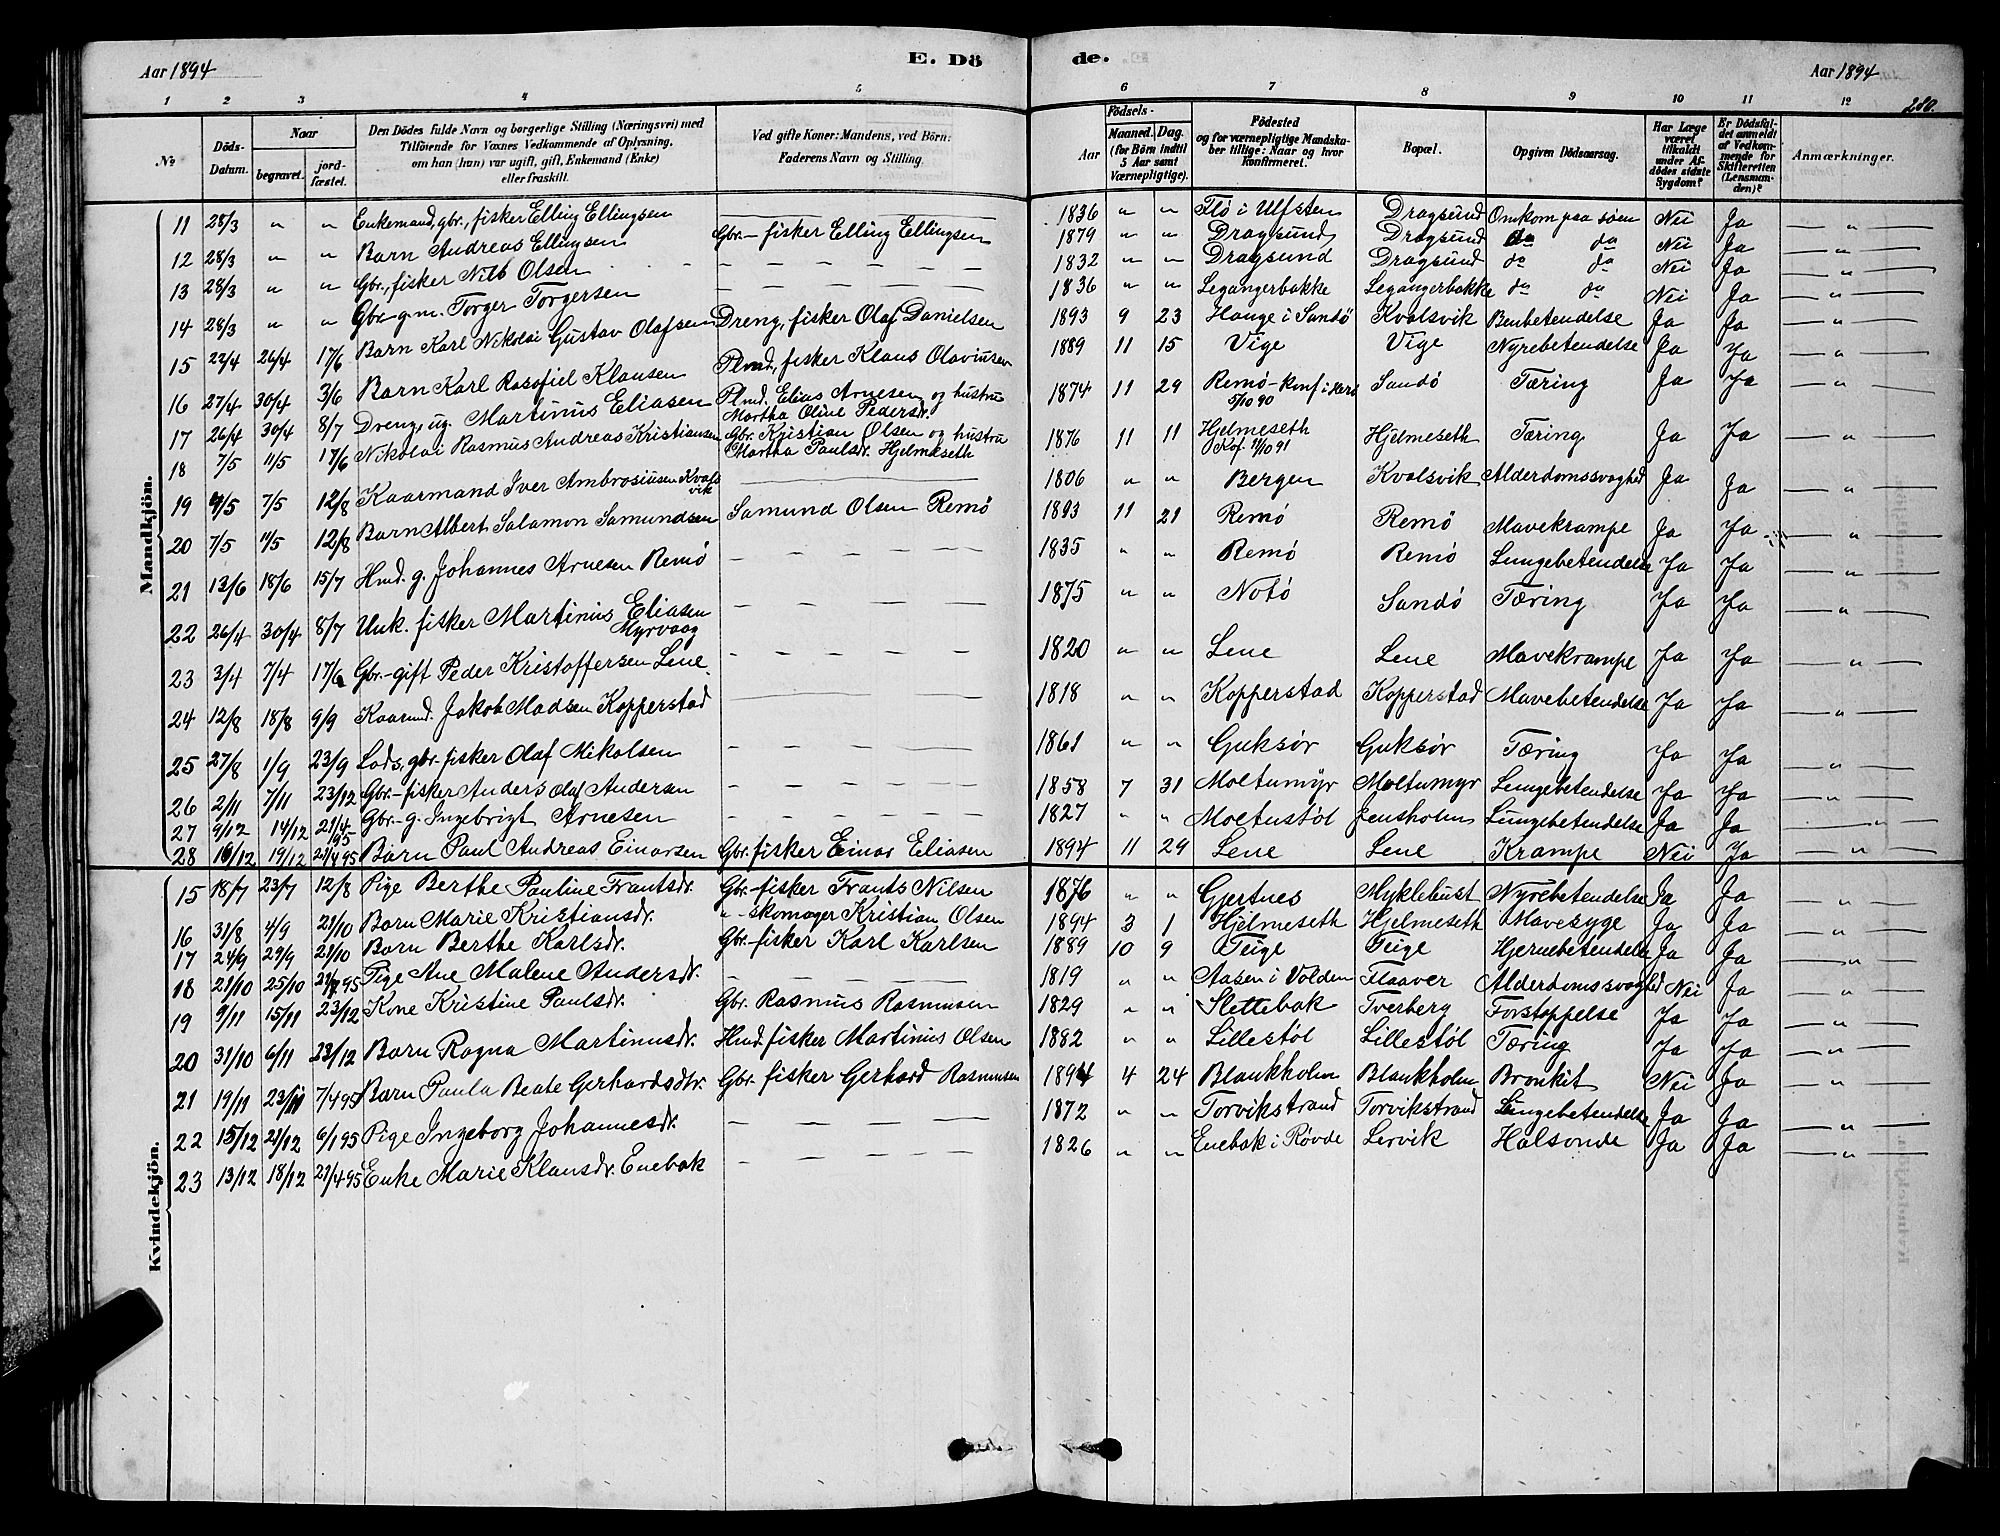 Aar 1894 E. Dö de. Aar 1894
280.
1 2 3 4 5 6 7 8 9 10 11 12
No Döds-Datum. Naar begravet. jord-fæstet. Den Dödes fulde Navn og borgerlige Stilling (Næringsvei) med Tilföiende for Voxnes Vedkommende af Oplysning, om han (hun) var ugift, gift, Enkemand (Enke) eller fraskilt. Ved gifte Koner: Mandens, ved Börn: Faderens Navn og Stilling. Födsels- Aar Maaned. Dag. (for Börn indtil 5 Aar samt Værnepligtige). Födested og for værnepligtige Mandskaber tillige: Naar og hvor Konfirmeret. Bopæl. Opgiven Dödsaarsag. Har Læge været tilkaldt under Afdödes sidste Sygdom? Er Dödsfaldet anmeldt af Vedkommende for Skifteretten (Lensmanden)? Anmærkninger.
Mandkjön.
11 28/3 " " Enkemand, gbr, fisker Elling Ellingsen 1836 " " Flö i Ulfsten Dragsund Omkom paa söen Nei Ja "
12 28/3 " " Barn Andreas Ellingsen Gbr- fisker Elling Ellingsen 1879 " " Dragsund Dragsund do do Nei Ja "
13 28/3 " " Gbr, fisker Nils Olsen 1832 " " Dragsund Dragsund do do Nei Ja "
14 28/3 " " Gbr g.m. Torger Torgersen 1836 " " Legangerbakke Legangerbakke do do Nei Ja "
15 22/4 26/4 17/6 Barn Karl Nikolai Gustav Olafsen Dreng, fisker Olaf Danielsen 1893 9 23 Hauge i Sandö Kvalsvik Benbetendelse Ja Ja "
16 27/4 30/4 3/6 Barn Karl Klausen Plmd, fisker Klaus Olaviusen 1889 11 15 Vige Vige Nyrebetendelse Ja Ja "
17 26/4 30/4 8/7 Dreng, ug. Martinus Eliasen Plmd. Elias Arnesen og hustru Martha Oline Pedersdr. 1874 11 29 Remö - Konf i Herö 5/10 90 Sandö Tæring Ja Ja "
18 7/5 11/5 17/6 Nikolai Rasmus Andreas Kristiansen Gbr. Kristian Olsen og hustru Martha Paulsdr. Hjelmeseth 1876 11 11 Hjelmeseth Kof. 11/10 91 Hjelmeseth Tæring Ja Ja "
19 4/5 7/5 12/8 Kaarmand Iver Ambrosiusen Kvalsvik 1806 " " Bergen Kvalsvik Alderdomssvaghed Ja Ja "
20 7/5 11/5 12/8 Barn Albert Salamon Samundsen Samund Olsen Remö 1893 11 21 Remö Remö Mavekrampe Ja Ja "
21 13/6 18/6 15/7 Hmd. g. Johannes Arnesen Remö 1835 " " Remö Remö Lungebetendelse Ja Ja "
22 26/4 30/4 8/7 Unk. fisker Martinus Eliasen Myrvaag 1875 " " Notö Sandö Tæring Ja Ja "
23 3/4 7/4 17/6 Gbr- gift Peder Kristoffersen Lene 1820 " " Lene Lene Mavekrampe Ja Ja "
24 12/8 18/8 9/9 Kaarmd. Jakob Madsen Kopperstad 1818 " " Kopperstad Kopperstad Mavebetendelse Ja Ja "
25 27/8 1/9 23/9 Lods, gbr- fisker Olaf Mikolsen 1861 " " Guksör Guksör Tæring Ja Ja "
26 2/11 7/11 23/12 Gbr- fisker Anders Olaf Andersen 1858 7 31 Moltumyr Moltumyr Lungebetendelse Ja Ja "
27 9/12 14/12 21/4 95 Gbr- g. Ingebrigt Arnesen 1827 " " Moltustöl Jensholm Lungebetendelse Ja Ja "
28 16/12 19/12 21/4 95 Barn Paul Andreas Einarsen Gbr. fisker Einar Eliasen 1894 11 29 Lene Lene Krampe Nei Ja "
Kvindekjön.
15 18/7 23/7 12/8 Pige Berthe Pauline Frantsdr. Gbr- fisker Frants Nilsen 1876 " " Gjertnes Myklebust Nyrebetendelse Ja Ja "
16 31/8 4/9 21/10 Barn Marie Kristiansdr. " - skomager Kristian Olsen 1894 3 1 Hjelmeseth Hjelmeseth Mavesyge Ja Ja "
17 24/9 29/9 21/10 Barn Berthe Karlsdr. Gbr- fisker Karl Karlsen 1889 10 9 Teige Teige Hjernebetendelse Ja Ja "
18 21/10 25/10 95 Pige Ane Malene Andersdr. 1819 " " Aasen i Volden Flaaver Alderdomssvaghed Nei Ja "
19 9/11 15/11 23/12 Kone Kristine Paulsdr. Gbr. Rasmus Rasmusen 1829 " " Slettebak Tverberg Forstoppelse Ja Ja "
20 31/10 6/11 23/12 Barn Ragna Martinusdr. Hmd. fisker Martinus Olsen 1882 " " Lillestöl Lillestöl Tæring Ja Ja "
21 19/11 23/11 7/4 95 Barn Paula Beate Gerhardsdtr. Gbr- fisker Gerhard Rasmusen 1894 4 24 Blankholm Blankholm Bronkit Nei Ja "
22 15/12 21/12 6/1 95 Pige Ingeborg Johannesdr. 1872 " " Torvikstrand Torvikstrand Lungebetendelse Ja Ja "
23 13/12 18/12 21/4 95 Enke Marie Klausdr. Enebak 1826 " " Enebak i Rövde Lervik Halsonde Ja Ja "